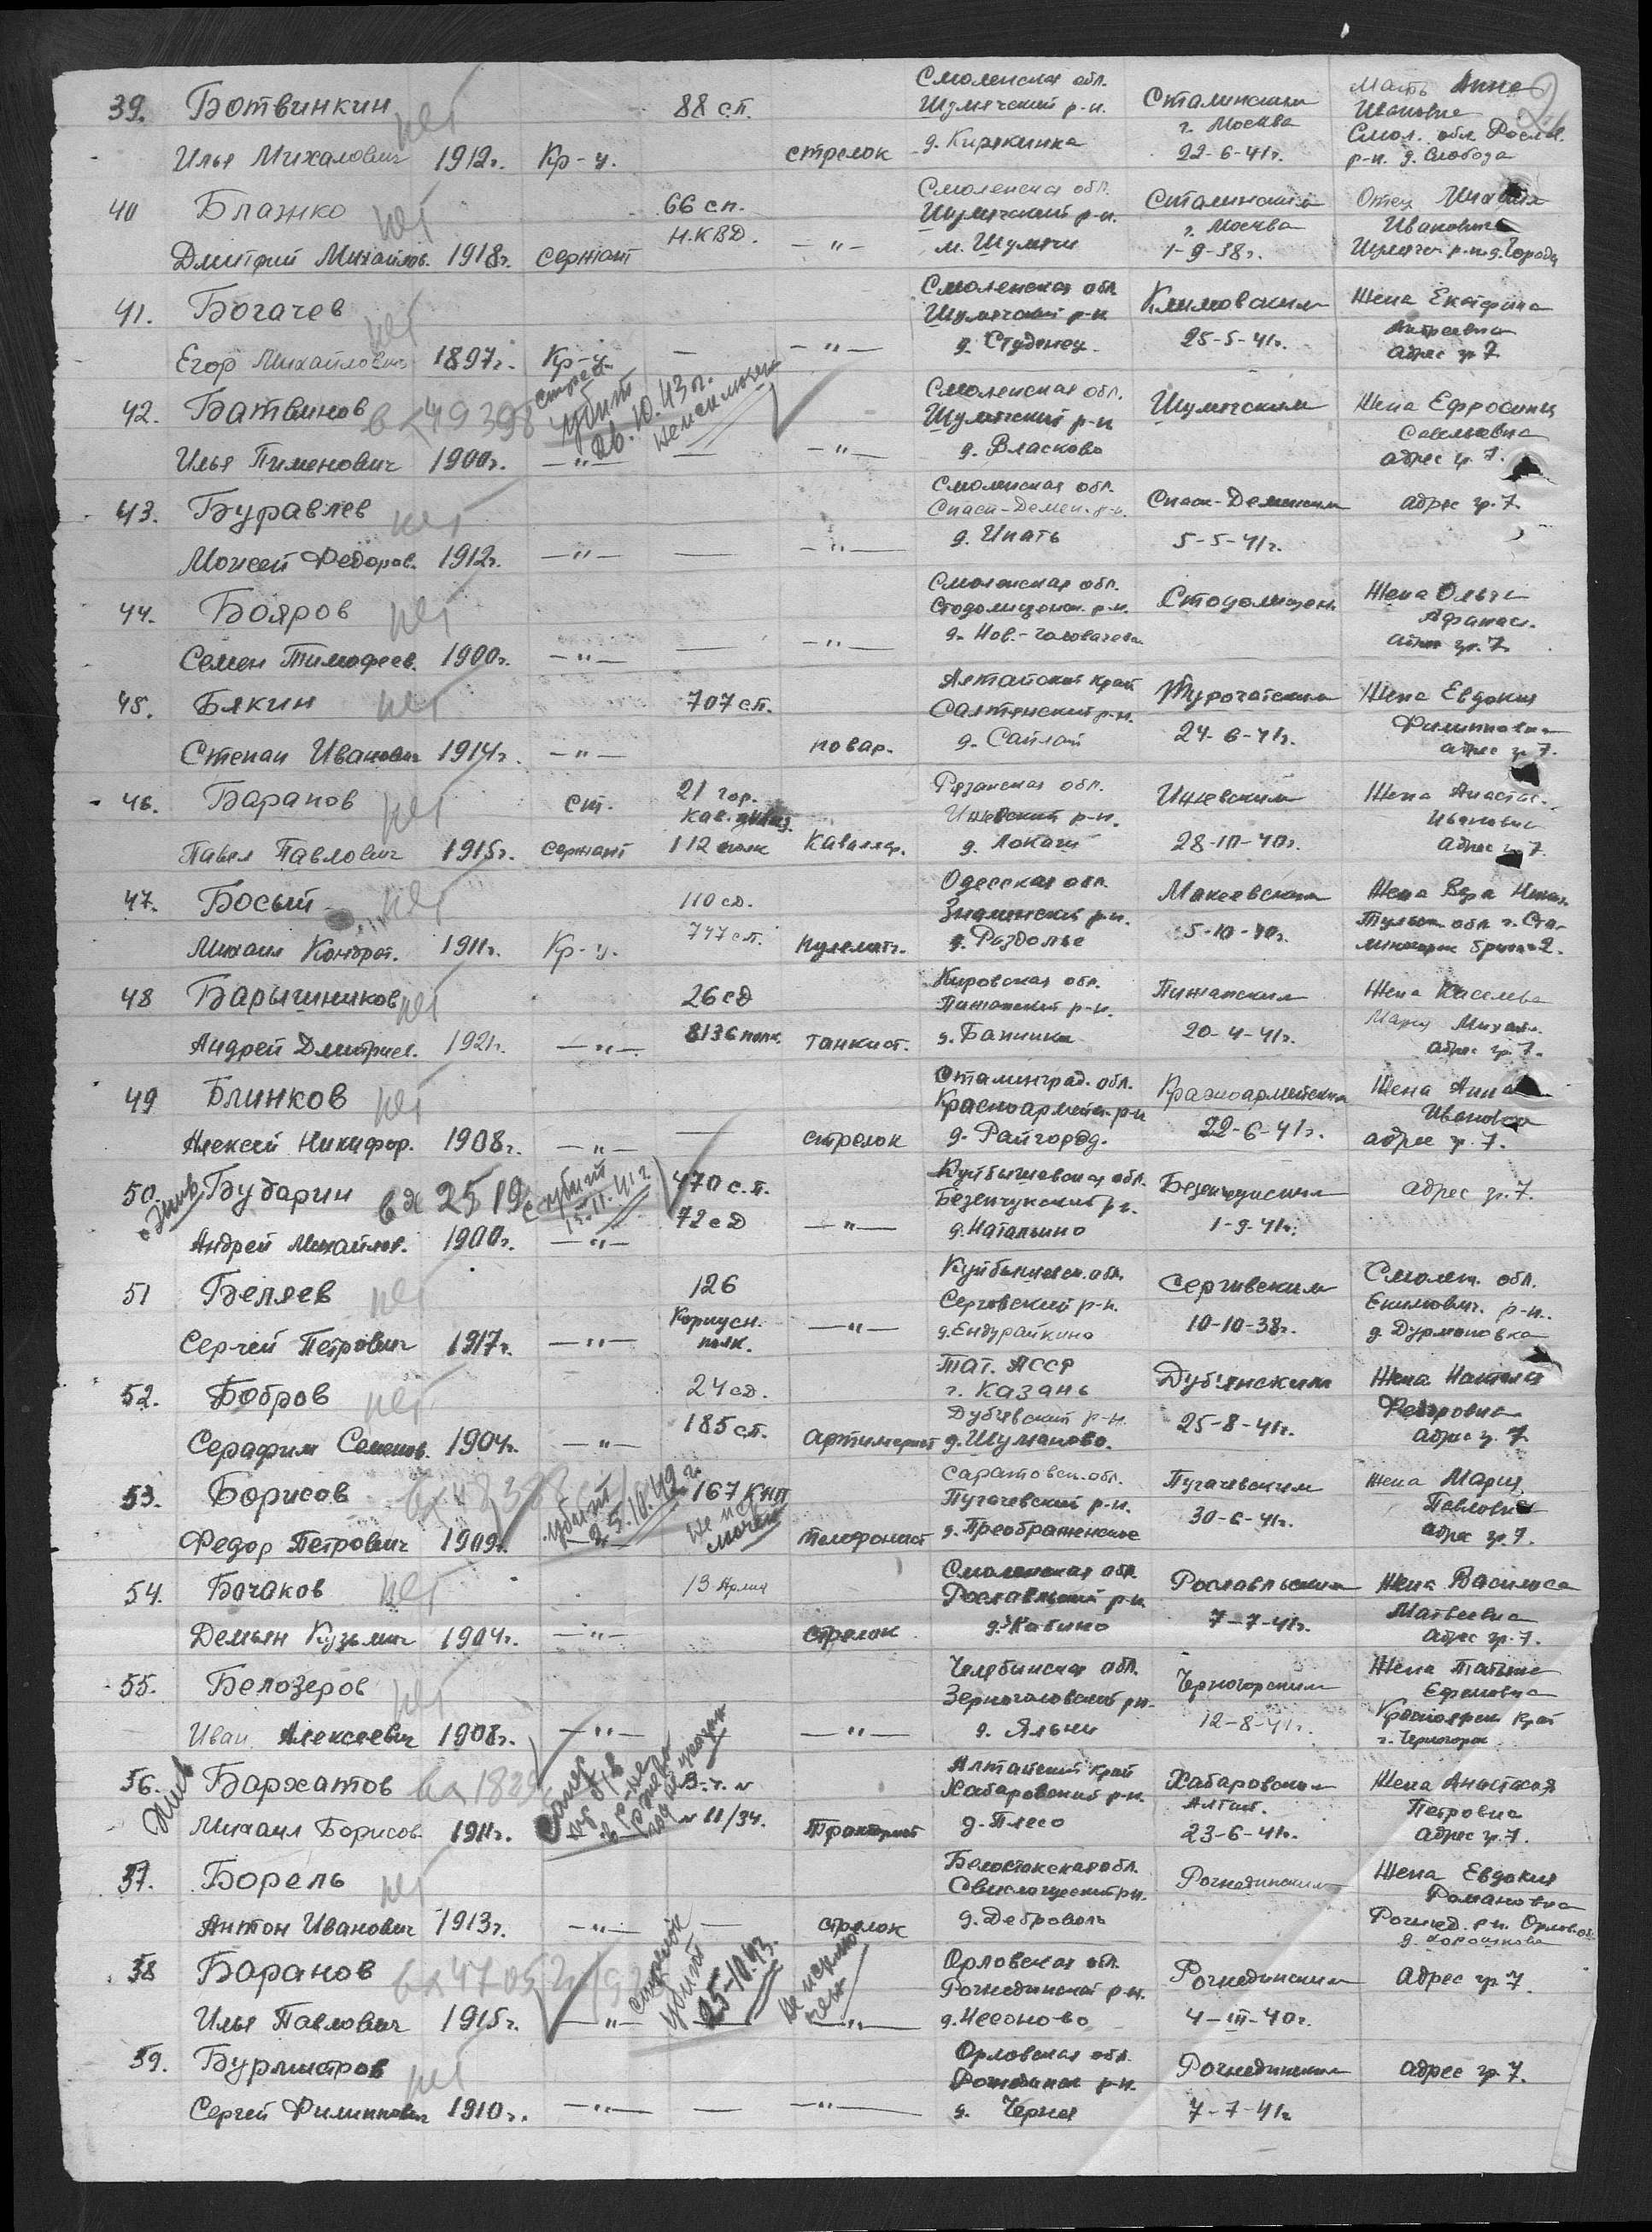 2
39. Ботвинкин нет 88 сп. Смоленская обл. Шумячский р-н. д. Кирякинка Сталинским г. Москва 22-6-41г. Мать Анна Ивановна Смол. обл. Рославл. р-н. д. Слобода
Илья Михалович 1912г. Кр-ц. стрелок
40 Блажко нет 66 сп. Н.КВД. Смоленская обл. Шумячский р-н. м. Шумячи Сталинским г. Москва 1-9-38г. Отец Ивановича Шумяч. р-н. д. Городец
Дмитрий Михайлов. 1918г. сержант —"—
41. Богачев нет Смоленская обл Шумячский р-н д. Студенец Климовским 25-5-41г. Жена Екатерина Андреевна адрес гр 7
Егор Михайлович 1897г. Кр-ц — —"—
42. Батвинов в х 49398 стрел. убит 26.10.43г. не исключен Смоленская обл. Шумячский р-н д. Власково Шумячским Жена Ефросинья Савельевна адрес гр. 7.
Илья Пименович 1900г. —"— — —"—
43. Буравлев нет Смоленская обл. Спасс-Демен. р-н. д. Ипать Спасс-Деменским 5-5-41г. адрес гр. 7
Моисей Федоров. 1912г. —"— — —"—
44. Бояров нет Смоленская обл. Стодолищенск. р-н. д. Нов.-Головачева Стодолищен. Жена Ольга Афанас. адрес гр. 7.
Семен Тимофеев. 1900г. —"— — —"—
45. Бякин нет 707 сп. Алтайский край Салтянский р-н. д. Сайлап Турочатским 24-6-41г. Жена Евдокия Филипповна адрес гр 7.
Степан Иванович 1914г. —"— повар.
46. Баранов нет ст. 21 гор. кав. дивиз. Рязанская обл. Ижевский р-н. д. Локаш Ижевским 28-10-40г. Жена Анастас. Ивановна адрес гр 7.
Павел Павлович 1915г. сержант 112 полк Кавалер.
47. Босый нет 110 сд. Одесская обл. Знаменский р-н. д. Раздолье Макеевским 5-10-40г. Жена Вера Тульск. обл. г. Ста-
Михаил Кондрат. 1911г. Кр-ц. 747 сп. пулеметч.
48 Барышников нет 26 сд Кировская обл. Пижанский р-н. д. Банинки Пижанским 20-4-41г. Жена Киселева Мария Михайл. адрес гр. 7.
Андрей Дмитриев. 1921г. —"— 8136 полк. танкист.
49 Блинков нет Сталинград. обл. Красноармейск. р-н д. Райгород. Красноармейским 22-6-41г. Жена Анна Ивановна адрес гр. 7.
Алексей Никифор. 1908г. —"— — стрелок
50. жив Бударин в х 2519с убит 15.11.41г. 470 с.п. 72 сд Куйбышевская обл. Безенчукский р-н. д. Натальино Безенчукским 1-9-41г. адрес гр. 7.
Андрей Михайлов. 1900г. —"— —"—
51 Беляев нет 126 Корпусн. полк. Куйбышевск. обл. Сергевский р-н. д. Ендурайкино Сергивским 10-10-38г. Смолен. обл. Екимович. р-н. д. Дурмановка
Сергей Петрович 1917г. —"— —"—
52. Бобров нет 24 сд. Тат. АССР г. Казань Дубъевский р-н. д. Шуманово. Дубъянским 25-8-41г. Жена Наталья Федоровна адрес гр. 7
Серафим Семенов. 1904г. —"— 185 сп. артилерист
53. Борисов убит 25.10.42г. не исключен 167 Кнп Саратовск. обл. Пугачевский р-н. д. Преображенское Пугачевским 30-6-41г. Жена Мария Павловна адрес гр. 7.
Федор Петрович 1909г. Телефонист
54. Бочаков нет 13 Армия Смоленская обл Рославльский р-н д. Кабино Рославльским 7-7-41г. Жена Василиса Матвеевна адрес гр. 7.
Демьян Кузьмич 1904г. —"— стрелок
55. Белозеров нет Челябинская обл. Зерноголовский р-н. д. Яльчи Черногорским 12-8-41г. Жена Татьяна Ефремовна Красноярск. край г. Черногорск
Иван Алексеевич 1908г. —"— —"—
56. жив Бархатов Алтайский край Хабаровский р-н. д. Плесо Хабаровским Алтайс. 23-6-41г. Жена Анастасия Петровна адрес гр. 7.
Михаил Борисов. 1911г. 11/34. Тракторист
57. Борель нет Белостокская обл. Свислочуский р-н. д. Доброволь Рогнединским Жена Евдокия Романовна Рогнед. р-н. Орловск. обл.
Антон Иванович 1913г. —"— — стрелок
58 Баранов в х 47052 стрелок убит 25-10.43. не исключен Орловская обл. Рогнединский р-н. д. Чесоново Рогнединским 4-III-40г. адрес гр 7.
Илья Павлович 1915г. —"— — —"—
59. Бурмистров нет Орловская обл. р-н. д. Черная Рогнединским 7-7-41г адрес гр 7.
Сергей Филиппович 1910г. —"— — —"—